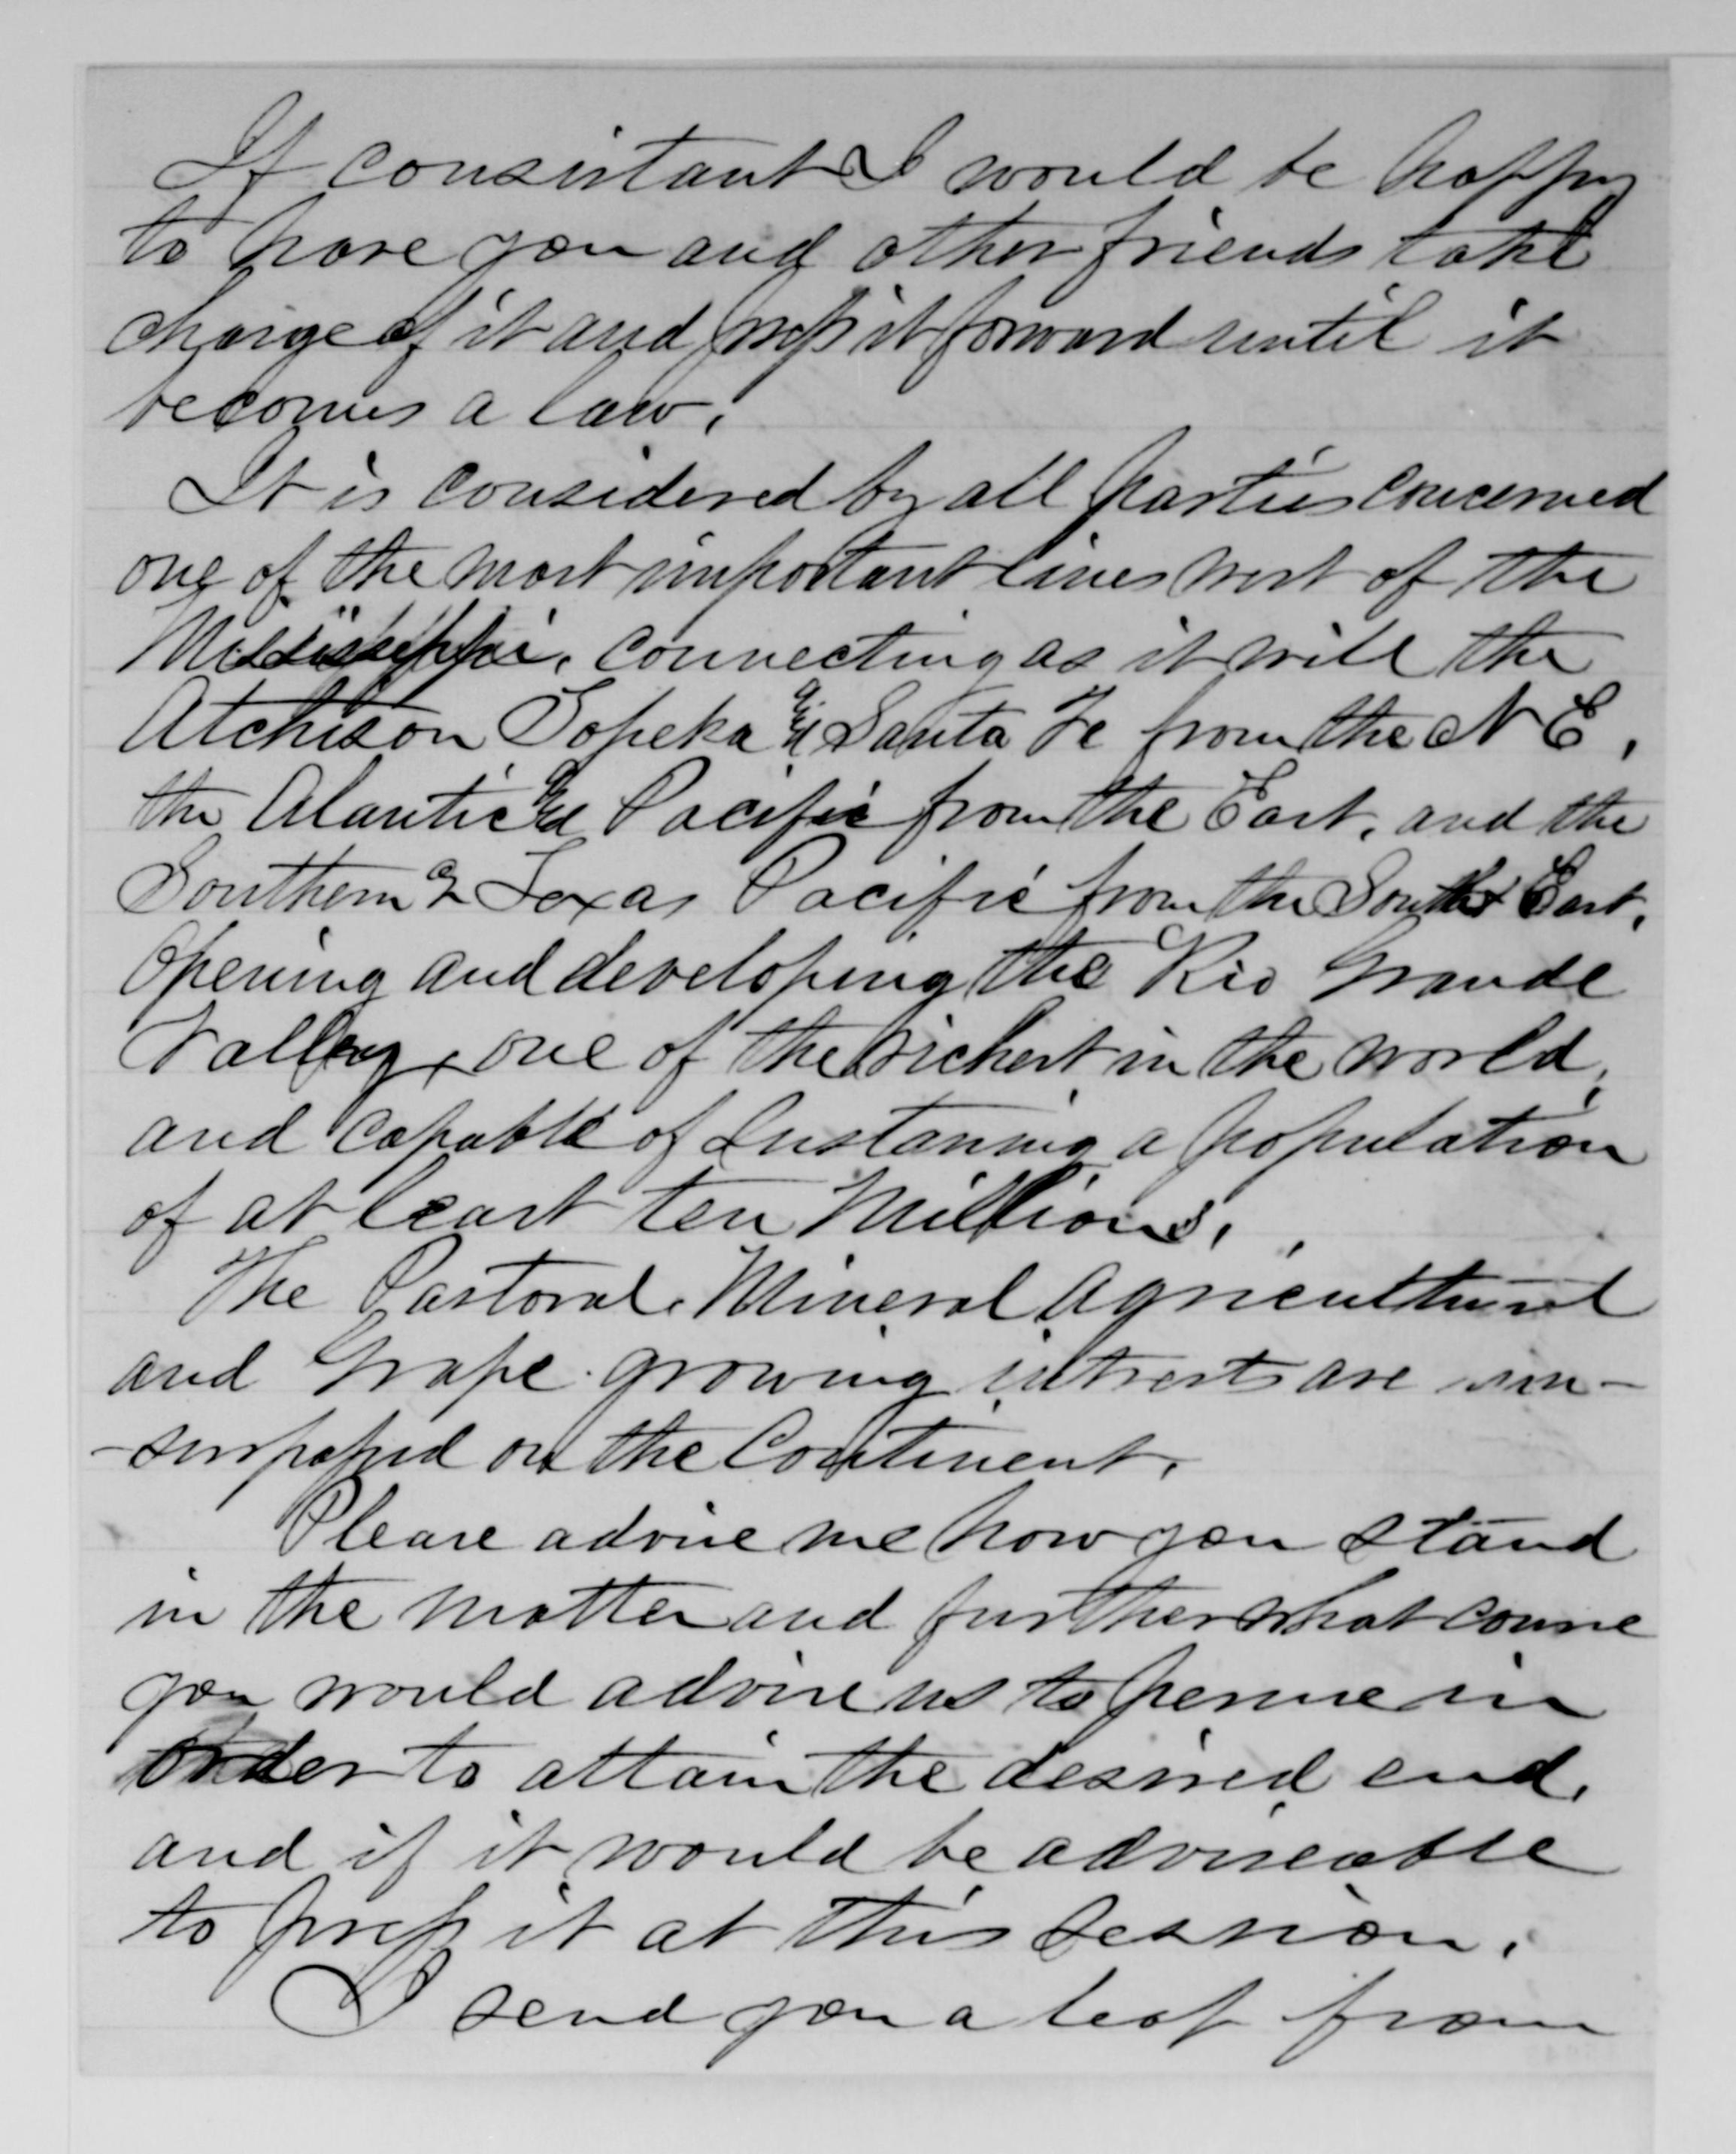 If consistant I would be happy
to have you and other friends take
charge of it and press it forward until it
becomes a law.
It is considered by all parties concerned
one of the most important lines west of the
Mississippi, connecting as it will the
Atchison Topeka & Santa Fe from the N E,
the Alantic & Pacific from the East, and the
Southern & Texas Pacific from the South East,
Opening and developing the Rio Grande
Valley, one of the richest in the world,
and capable of Sustaning a population
of at least ten Millions.
The Pastoral, Mineral, Agricultural
and Grape growing intrests are un-
-surpassed on the Continent.
Please advise me how you stand
in the matter and further what course
you would advise us to persue in
order to attain the desired end,
and if it would be adviseable
to press it at this Session.
I send you a leaf from